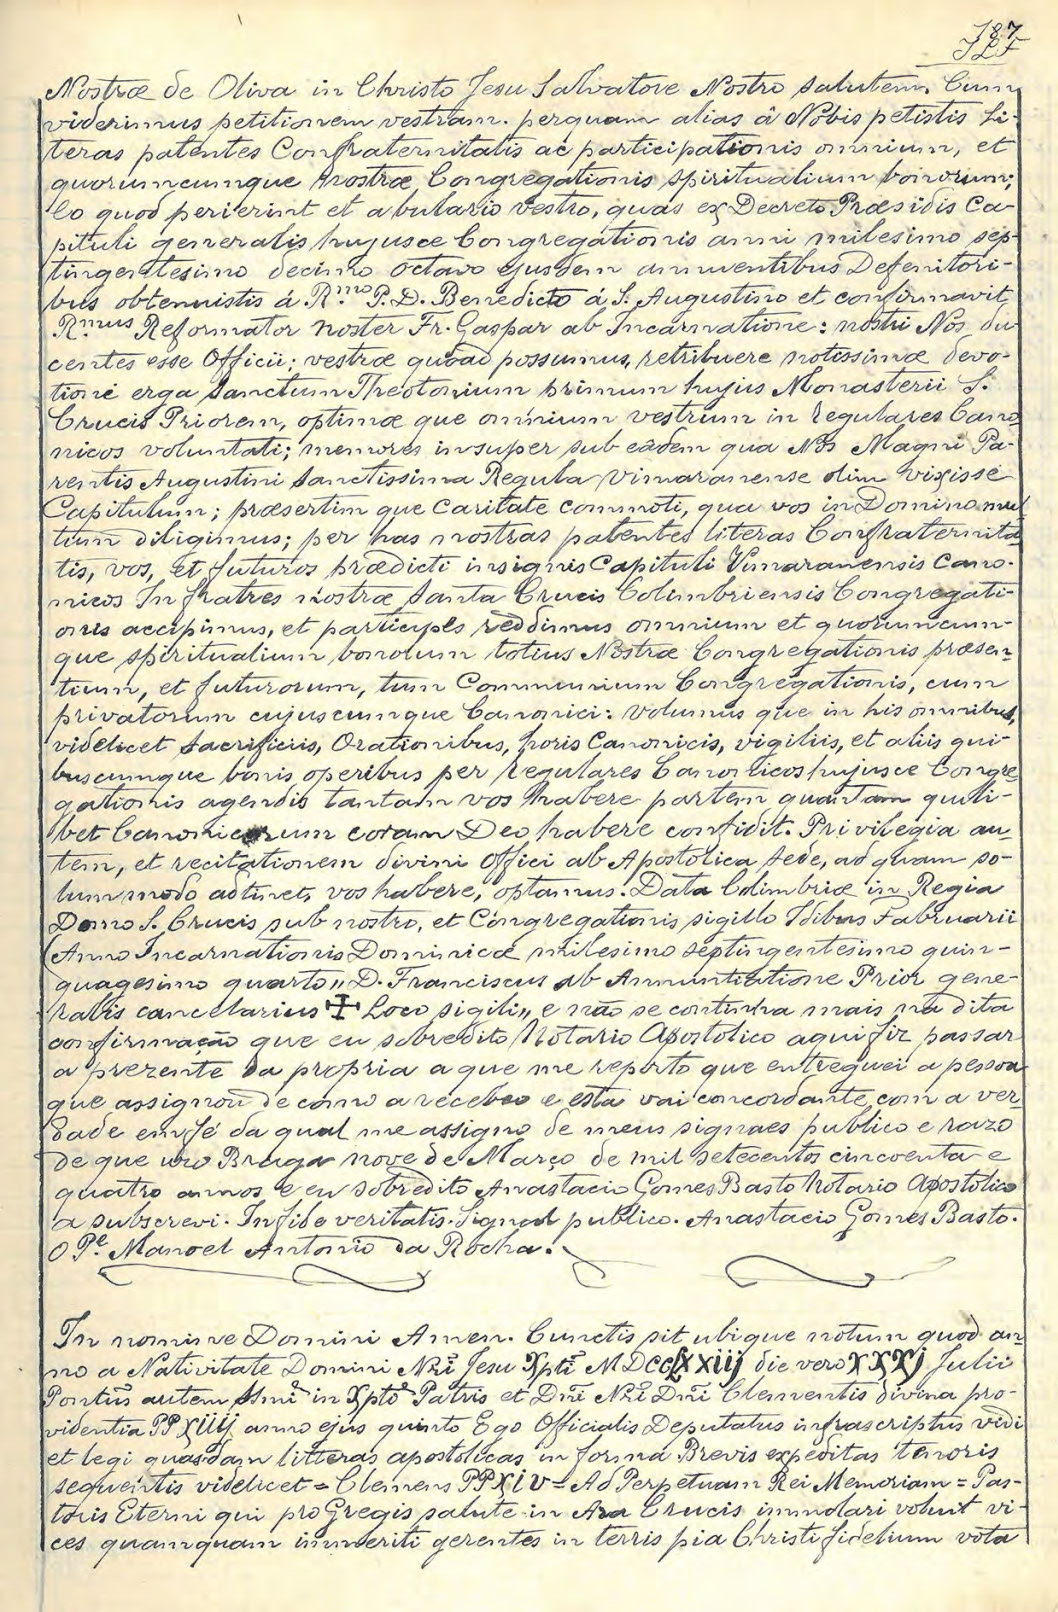 187
Nostræ de Oliva in Christo Jesu Salvatore Nostro salutem. Cum
viderimus petitionem vestram. perquam alias â Nobis petistis Li-
teras patentes Confraternitatis ac participationis omnium, et
quorumcumque Nostræ Congregationis spiritualium bonorum;
Eo quod perierint et abulario vestro, quas ex Decreto Præsidis Ca-
pituli generalis hujusce Congregationis anni milesimo sep-
tingentesimo decimo octavo ejusdem annuentibus Defenitori-
bus obtenuistis á R.mo P. D. Benedicto á S. Augustino et confirmavit
R.mus Reformator noster Fr. Gaspar ab Incarnatione: nostri Nos du
centes esse Officii; vestræ quoad possumus, retribuere notissimæ devo-
tioni erga Sanctum Theotonium primum hujus Monasterii S.
Crucis Priorem, optimæ que omnium vestrum in regulares Cano
nicos voluntati; memores insuper sub eadem qua Nos Magni Pa-
rentis Augustini Sanctissima Regula Vimaranense olim vixisse
Capitulum; præsertim que Caritate commoti, qua vos in Domino mul
tum diligimus; per has nostras patentes literas Confraternita-
tis, vos, et futuros prædicti insignis Capituli Vimaranensis Cano-
nicos In fratres nostræ Santa Crucis Colimbriensis Congregati-
onis accipimus, et participes reddimus omnium et quorumcum-
que spiritualium bonorum totius Nostræ Congregationis præsen-
tium, et futurorum, tum Communium Congregationis, cum
privatorum cujuscumque Canonici: Volumus que in his omnibus,
videlicet Sacrificiis, Orationibus, horis Canonicis, vigiliis, et aliis qui-
buscumque bonis operibus per regulares Canonicos hujusce Congre
gationis agendis tantam vos habere partem quantam quili-
bet Canonicorum coram Deo habere confidit. Privilegia au-
tem, et recitationem divini Offici ab Apostolica Sede, ad quam so-
lummodo adtinet, vos habere, optamus. Data Colimbriæ in Regia
Domo S. Crucis sub nostro, et Congregationis sigillo Idibus Fabruarii
Anno Incarnationis Dominicæ milesimo septingentesimo quin-
quagesimo quarto,, D. Franciscus ab Annuntiatione Prior gene-
ralis cancelarius ✠ Loco sigili,, e não se continha mais na dita
confirmação que eu sobredito Notario Apostolico aqui fiz passar
a prezente da propria a que me reporto que entreguei a pessoa
que assignou de como a recebeo e esta vai concordante com a ver-
dade em fé da qual me assigno de meus signaes publico e razo
de que uzo Braga nove de Março de mil setecentos cincoenta e
quatro annos e eu sobredito Anastacio Gomes Basto Notario Apostolico
a subscrevi. In fide veritatis. Signal publico. Anastacio Gomes Basto.
O P.e Manoel Antonio da Rocha.
In nomine Domini Amen. Cunctis sit ubique notum quod an-
no a Nativitate Domini Nri Jesu Xpti MDCCLXXiij die vero XXXj Julii
Pontus autem Smi in Xpto Patris et Dni Nri Dni Clementis divina pro-
videntia PP XIIIj anno ejus quinto Ego Officialis Deputatus infrascriptus vidi
et legi quasdam litteras apostolicas in forma Brevis expeditas tenoris
sequentis videlicet = Clemens PP XIV = Ad Perpetuam Rei Memoriam = Pas-
toris Eterni qui pro Gregis salute in Ara Crucis immolari voluit vi-
ces quamquam immeriti gerentes in terris pia Christi fidelium vota